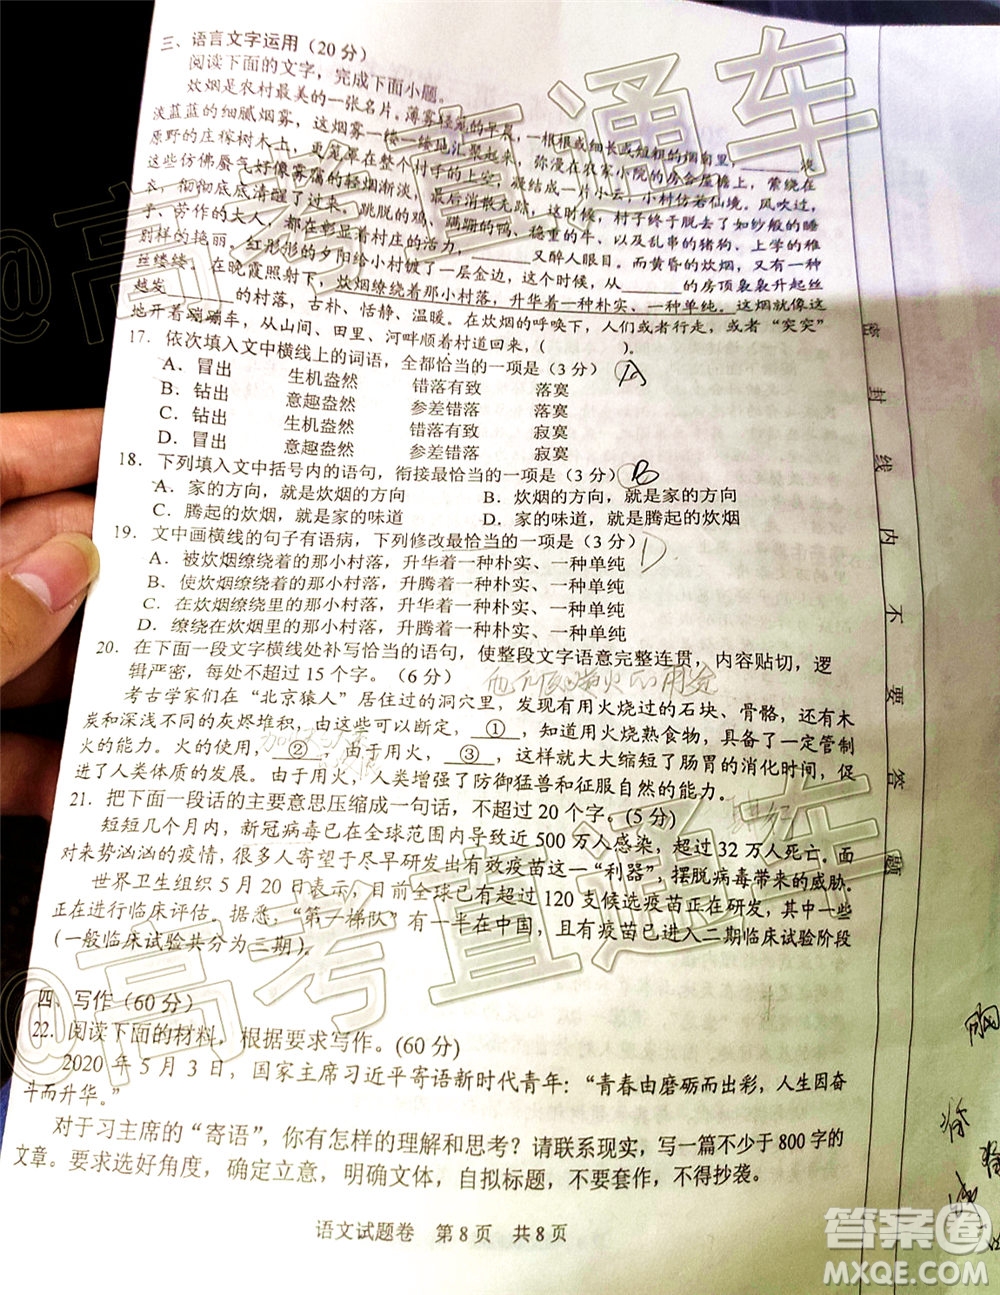 三、语言文字运用（20分）
阅读下面的文字，完成下面小题。
炊烟是农村最美的一张名片。薄雾轻笼的早晨，一根根或细长或短粗的烟囱里，______淡
淡蓝蓝的细腻烟雾，这烟雾一缕一缕地汇聚起来，弥漫在农家小院的房舍屋檐上，萦绕在
原野的庄稼树木上，笼罩在整个村子的上空，仿佛是一片片小云，小村仿若仙境。风吹过，
这些仿佛蜃气好像雾霭的轻烟渐淡，最后消散无踪，这时候，村子终于脱去了如纱般的睡
衣，彻彻底底清醒了过来。跳脱的鸡、蹒跚的鸭、稳重的牛、以及乱串的猪狗、上学的孩
子、劳作的大人，都在彰显着村庄的活力，______又醉人眼目。而黄昏的炊烟，又是一种
别样的艳丽。红彤彤的夕阳给小村嵌上了一层金边，这时候，______的房顶袅袅升起丝
丝缕缕。在晚霞照射里，炊烟缭绕着那小村落，升华着一种朴实、一种单纯。这烟让小村
越发______的村落，古朴、恬静、温暖。在炊烟的呼唤下，人们或者行走，或者“突突”
地开着蹦蹦车，从山间、田里、河畔顺着村道回来，（　　）。
17．依次填入文中横线上的词语，全都恰当的一项是（3分） A
A．冒出 生机盎然 错落有致 落寞
B．钻出 意趣盎然 参差错落 落寞
C．钻出 生机盎然 错落有致 寂寞
D．冒出 意趣盎然 参差错落 寂寞
18．下列填入文中括号内的语句，衔接最恰当的一项是（3分） B
A．家的方向，就是炊烟的方向 B．炊烟的方向，就是家的方向
C．腾起的炊烟，就是家的味道 D．家的味道，就是腾起的炊烟
19．文中画横线的句子有语病，下列修改最恰当的一项是（3分） D
A．被炊烟缭绕着的那小村落，升华着一种朴实、一种单纯
B．使炊烟缭绕着的那小村落，升腾着一种朴实、一种单纯
C．在炊烟缭绕里的那小村落，升华着一种朴实、一种单纯
D．缭绕在炊烟里的那小村落，升腾着一种朴实、一种单纯
20．在下面一段文字横线处补写恰当的语句，使整段文字语意完整连贯，内容贴切，逻
辑严密，每处不超过15个字。（6分）
考古学家们在“北京猿人”居住过的洞穴里，发现有用火烧过的石块、骨骼，还有木
炭和深浅不同的灰烬堆积，由此可以断定，__①__，知道用火烧熟食物，具备了一定管制
火的能力。火的使用，__②__，由于用火，__③__，这样就大大缩短了肠胃的消化时间，促
进了人类体质的发展。由于用火，人类增强了防御猛兽和征服自然的能力。
21．把下面一段话的主要意思压缩成一句话，不超过20个字。（5分）
短短几个月内，新冠病毒已在全球范围内导致近500万人感染，超过32万人死亡。面
对来势汹汹的疫情，很多人寄望于尽早研发出有效疫苗这一“利器”，摆脱病毒带来的威胁。
世界卫生组织5月20日表示，目前全球已有超过120支候选疫苗正在研发，其中一些
正在进行临床评估。据悉，“第一梯队”有一半在中国，且有疫苗已进入二期临床试验阶段
（一般临床试验共分为三期）。
四、写作（60分）
22．阅读下面的材料，根据要求写作。（60分）
2020年5月3日，国家主席习近平寄语新时代青年：“青春由磨砺而出彩，人生因奋
斗而升华。”
对于习主席的“寄语”，你有怎样的理解和思考？请联系现实，写一篇不少于800字的
文章。要求选好角度，确定立意，明确文体，自拟标题，不要套作，不得抄袭。
语文试题卷　第8页　共8页
密封线内不要答题
@高考直通车
@高考直通车
答案圈
MXQE.COM